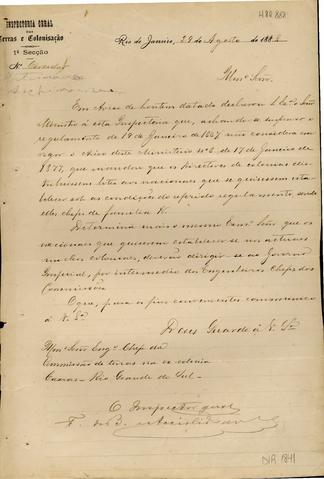 INSPECTORIA GERAL
DAS
Terras e Colonisação
1ª Secção
Nº
Rio de Janeiro, 29 de Agosto de 188
Illmo Snr.
Em Aviso de hontem datado declarou S. Ex.ª o Snr
Ministro à esta Inspectoria que, achando-se suspenso o
regulamento de 19 de Janeiro de 1867 não considera em
vigor o Aviso deste Ministerio nº 2 de 17 de Janeiro de
1877, que mandou que os Directores de colonias dis
tribuissem lotes aos nacionaes que se quisessem esta
belecer sob as condições do referido regulamento sendo
elles chefes de familia &.
Determina mais o mesmo Exmo Snr que os
nacionaes que quiserem estabelecer-se nos actuaes
nucleos coloniaes, deverão dirigir-se ao Governo
Imperial, por intermedio dos Engenheiros Chefes das
Commissões
O que, para os fins convenientes communico
à V. Sª
Deus Guarde à V. Sª
Illmo Snr Engº Chefe da
Commissão de terras na ex colonia
Caxias - Rio Grande do Sul -
O Inspector geral
F. de B. e Accioli de
NR 1841